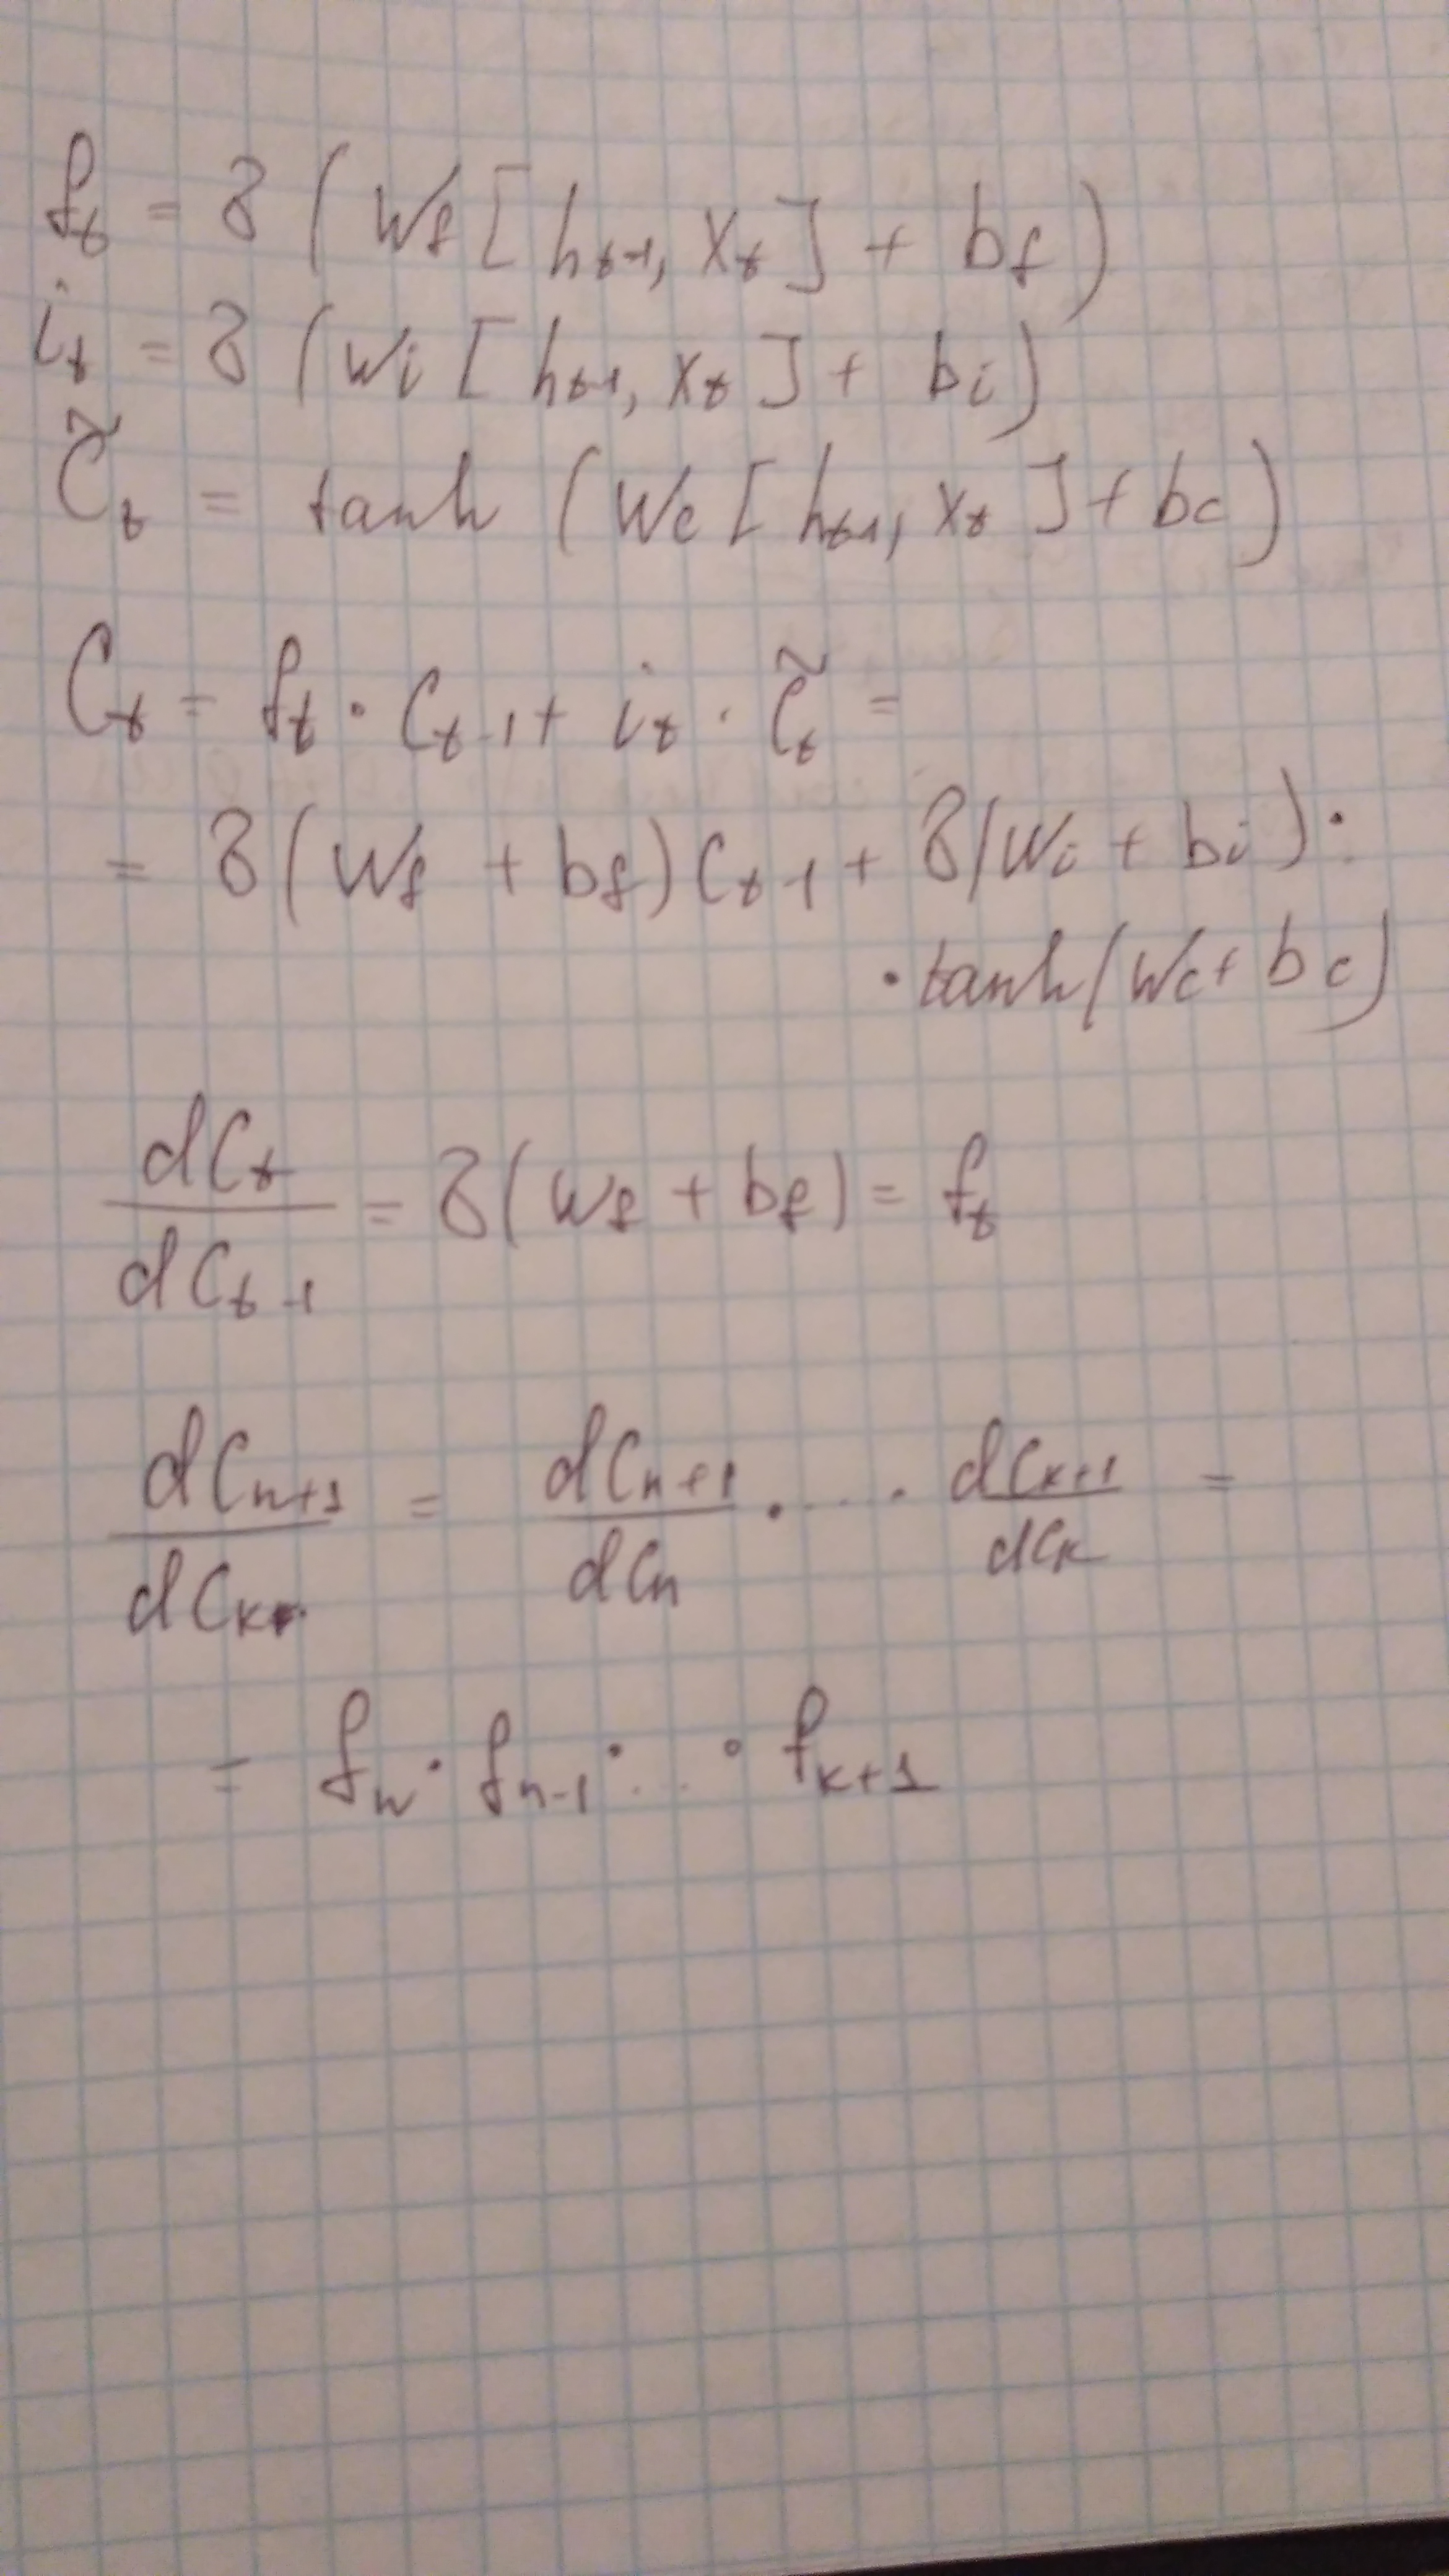 f_t = σ ( W_f [ h_{t-1}, x_t ] + b_f )
i_t = σ ( W_i [ h_{t-1}, x_t ] + b_i )
C̃_t = tanh ( W_c [ h_{t-1}, x_t ] + b_c )
C_t = f_t · C_{t-1} + i_t · C̃_t =
= σ ( W_f + b_f ) C_{t-1} + σ ( W_i + b_i ) ·
· tanh ( W_c + b_c )
dC_t / dC_{t-1} = σ ( W_f + b_f ) = f_t
dC_{n+1} / dC_k = dC_{n+1} / dC_n · ... · dC_{k+1} / dC_k =
= f_n · f_{n-1} · ... · f_{k+1}